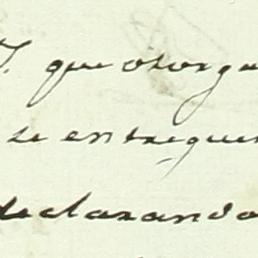 que otorgu
se entreguen
declarando